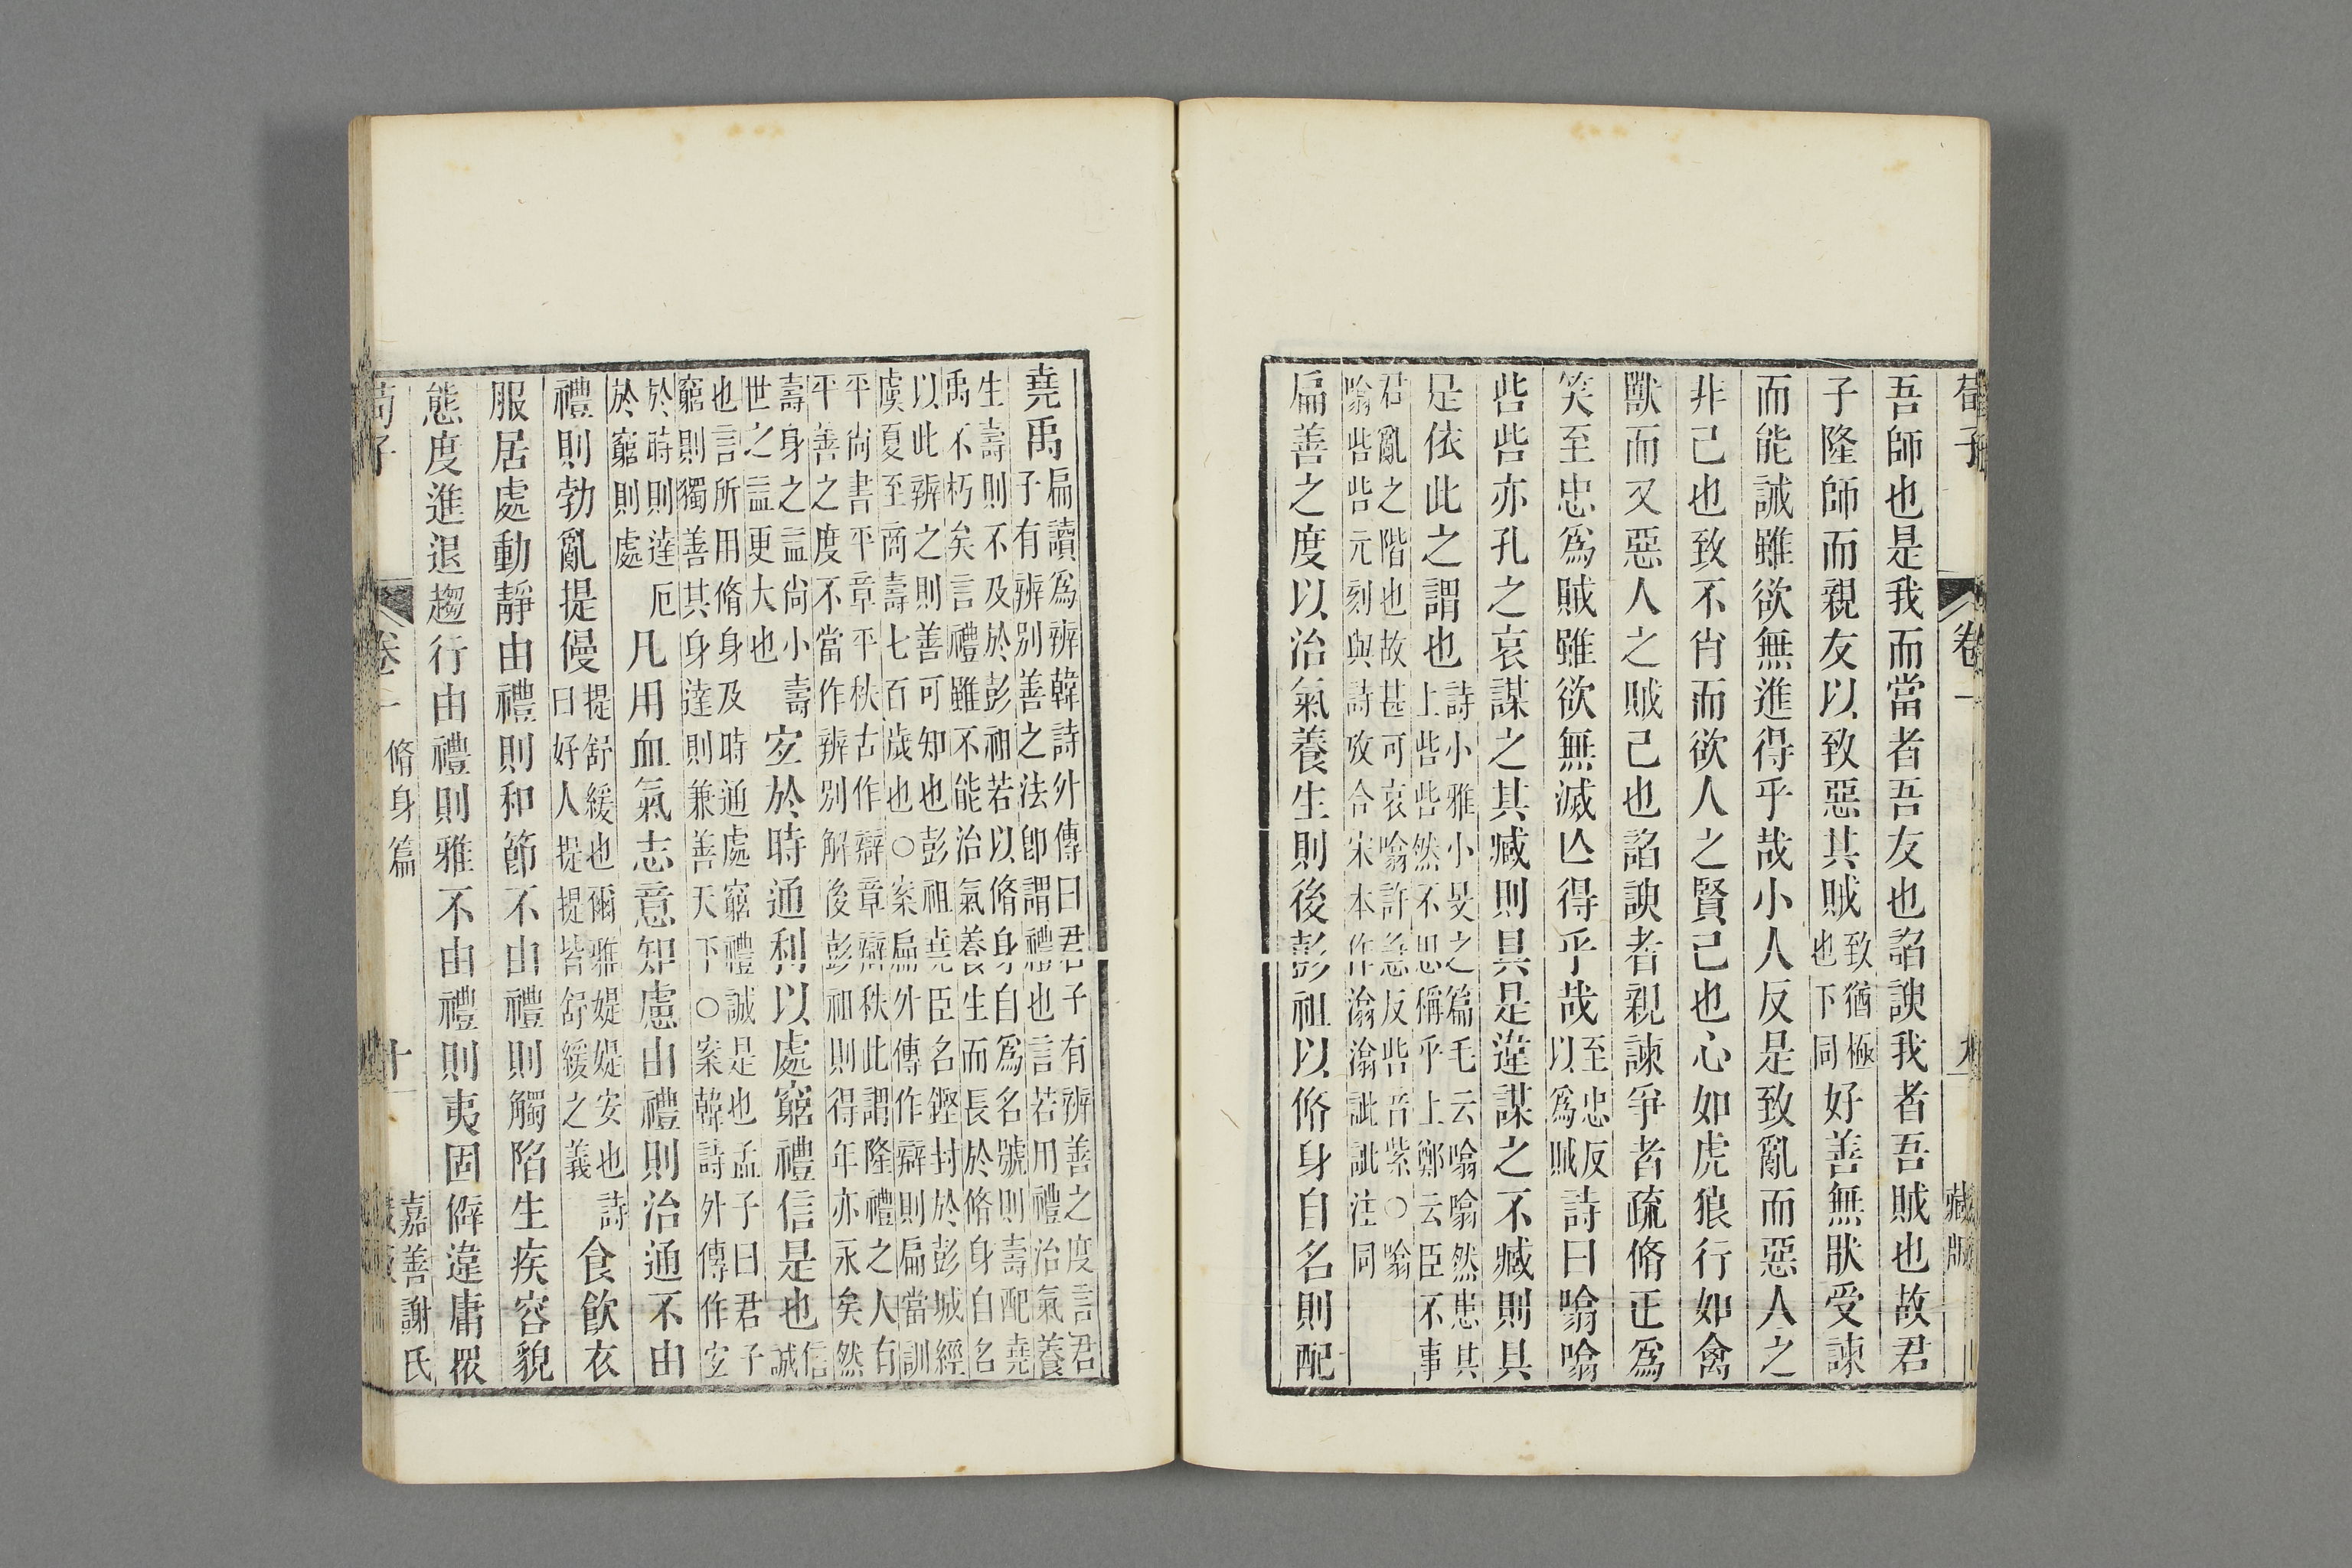 荀子
卷一
藏版
吾師也是我而當者吾友也諂諛我者吾賊也故君
子隆師而親友以致惡其賊致猶極也下同好善無猒受諫
而能誡雖欲無進得乎哉小人反是致亂而惡人之
非己也致不肖而欲人之賢己也心如虎狼行如禽
獸而又惡人之賊己也諂諛者親諫爭者疏脩正爲
笑至忠爲賊雖欲無滅亾得乎哉至忠反以爲賊詩曰噏噏
呰呰亦孔之哀謀之其臧則具是違謀之不臧則具
是依此之謂也詩小雅小旻之篇毛云噏噏然患其上呰呰然不思稱乎上鄭云臣不事
君亂之階也故甚可哀噏許急反呰音紫○噏噏呰呰元刻與詩攷合宋本作潝潝訿訿注同
扁善之度以治氣養生則後彭祖以脩身自名則配
堯禹扁讀爲辨韓詩外傳曰君子有辨善之度言君子有辨别善之法卽謂禮也言若用禮治氣養
生壽則不及於彭祖若以脩身自爲名號則壽配堯禹不朽矣言禮雖不能治氣養生而長於脩身自名
以此辨之則善可知也彭祖堯臣名鏗封於彭城經虞夏至商壽七百歲也○案扁外傳作辯則扁當訓
平尙書平章平秩古作辯章辯秩此謂隆禮之人有平善之度不當作辨别解後彭祖則得年亦永矣然
壽身之益尙小壽世之益更大也宐於時通利以處窮禮信是也信誠
也言所用脩身及時通處窮禮誠是也孟子曰君子窮則獨善其身達則兼善天下○案韓詩外傳作宐
於時則達厄於窮則處凡用血氣志意知慮由禮則治通不由
禮則勃亂提僈提舒緩也爾雅媞媞安也詩曰好人提提皆舒緩之義食飮衣
服居處動靜由禮則和節不由禮則觸陷生疾容貌
態度進退趨行由禮則雅不由禮則夷固僻違庸衆
荀子
卷一
脩身篇
十
嘉善謝氏